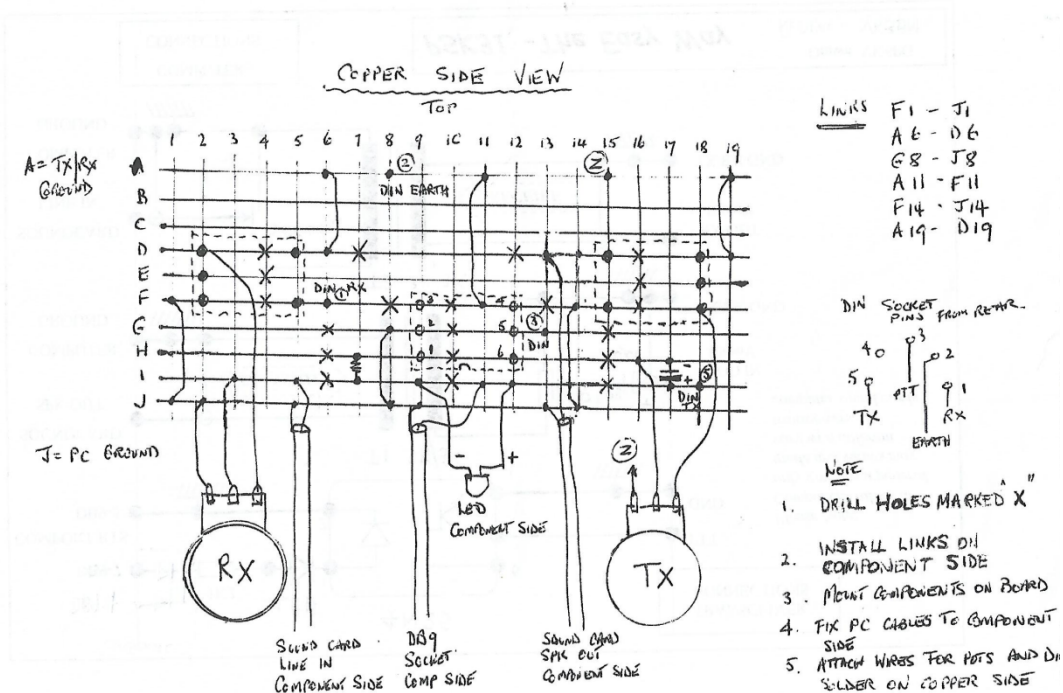 COPPER SIDE VIEW
TOP
1 2 3 4 5 6 7 8 9 10 11 12 13 14 15 16 17 18 19
A = TX/RX
GROUND
A
B
C
D
E
F
G
H
I
J
J = PC GROUND
②
DIN EARTH
②
DIN ① RX
3
4
2
5
1
6
③
DIN
⑤
DIN
TX
- +
LED
COMPONENT SIDE
②
RX
TX
SOUND CARD
LINE IN
COMPONENT SIDE
DB9
SOCKET
COMP SIDE
SOUND CARD
SPK OUT
COMPONENT SIDE
LINKS F1 - J1
A6 - D6
G8 - J8
A11 - F11
F14 - J14
A19 - D19
DIN SOCKET
PINS FROM REAR
4
3
2
5
1
TX
PTT
RX
EARTH
NOTE
1. DRILL HOLES MARKED "X"
2. INSTALL LINKS ON
COMPONENT SIDE
3. MOUNT COMPONENTS ON BOARD
4. FIX PC CABLES TO COMPONENT
SIDE
5. ATTACH WIRES FOR POTS AND DI
SOLDER ON COPPER SIDE
PSK31. - The Easy Way